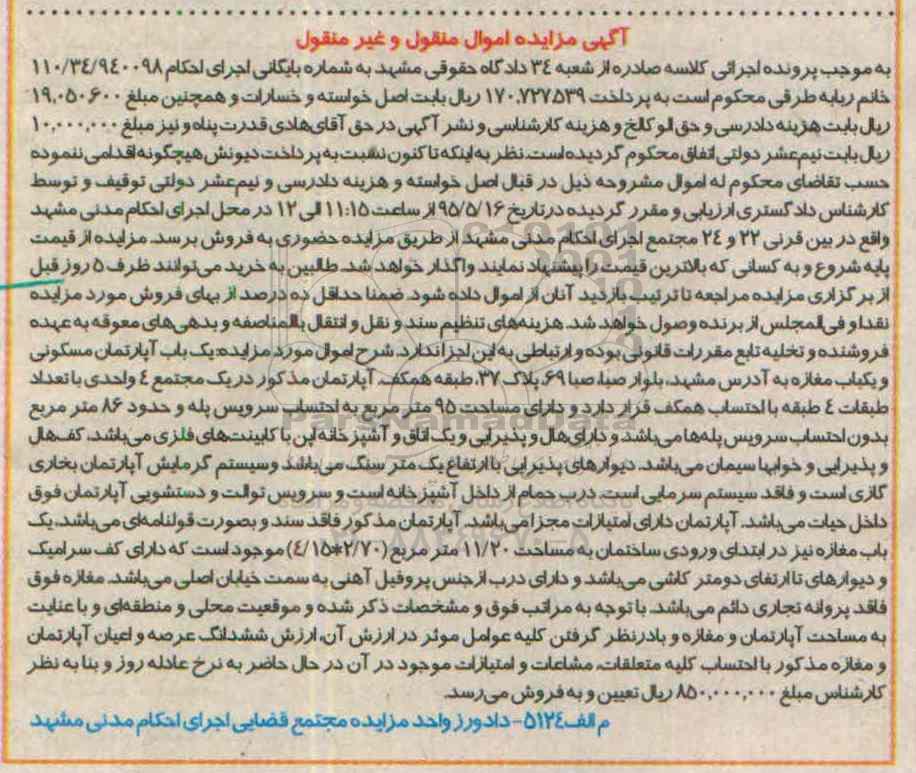 آگهی مزایده اموال منقول و غیر منقول
به موجب پرونده اجرائی کلاسه صادره از شعبه ۳۴ دادگاه حقوقی مشهد به شماره بایگانی اجرای احکام ۱۱۰/۳۴/۹٤۰۰۹۸
خانم ربابه طرقی محکوم است به پرداخت ۱۷۰,۷۲۷,۵۳۹ ریال بابت اصل خواسته و خسارات و همچنین مبلغ ۱۹,۰۵۰,۶۰۰
ریال بابت هزینه دادرسی و حق الوکاله و هزینه کارشناسی و نشر آگهی در حق آقای هادی قدرت پناه و نیز مبلغ ۱۰,۰۰۰,۰۰۰
ریال بابت نیم عشر دولتی اتفاق محکوم گردیده است. نظر به اینکه تا کنون نسبت به پرداخت دیونش هیچگونه اقدامی ننموده
حسب تقاضای محکوم له اموال مشروحه ذیل در قبال اصل خواسته و هزینه دادرسی و نیم عشر دولتی توقیف و توسط
کارشناس دادگستری ارزیابی و مقرر گردیده در تاریخ ۹۵/۵/۱۶ از ساعت ۱۱:۱۵ الی ۱۲ در محل اجرای احکام مدنی مشهد
واقع در بین قرنی ۲۲ و ۲٤ مجتمع اجرای احکام مدنی مشهد از طریق مزایده حضوری به فروش برسد. مزایده از قیمت
پایه شروع و به کسانی که بالاترین قیمت را پیشنهاد نمایند واگذار خواهد شد. طالبین به خرید می‌توانند ظرف ۵ روز قبل
از برگزاری مزایده مراجعه تا ترتیب بازدید آنان از اموال داده شود. ضمنا حداقل ده درصد از بهای فروش مورد مزایده
نقدا و فی‌المجلس از برنده وصول خواهد شد. هزینه‌های تنظیم سند و نقل و انتقال بالمناصفه و بدهی‌های معوقه به عهده
فروشنده و تخلیه تابع مقررات قانونی بوده و ارتباطی به این اجرا ندارد. شرح اموال مورد مزایده: یک باب آپارتمان مسکونی
و یکباب مغازه به آدرس مشهد، بلوار صبا، صبا ۶۹، پلاک ۳۷، طبقه همکف. آپارتمان مذکور در یک مجتمع ٤ واحدی با تعداد
طبقات ٤ طبقه با احتساب همکف قرار دارد و دارای مساحت ۹۵ متر مربع به احتساب سرویس پله و حدود ۸۶ متر مربع
بدون احتساب سرویس پله‌ها می‌باشد و دارای هال و پذیرایی و یک اتاق و آشپزخانه اپن با کابینت‌های فلزی می‌باشد. کف هال
و پذیرایی و خوابها سیمان می‌باشد. دیوارهای پذیرایی با ارتفاع یک متر سنگ می‌باشد و سیستم گرمایش آپارتمان بخاری
گازی است و فاقد سیستم سرمایی است. درب حمام از داخل آشپزخانه است و سرویس توالت و دستشویی آپارتمان فوق
داخل حیات می‌باشد. آپارتمان دارای امتیازات مجزا می‌باشد. آپارتمان مذکور فاقد سند و بصورت قولنامه‌ای می‌باشد، یک
باب مغازه نیز در ابتدای ورودی ساختمان به مساحت ۱۱/۲۰ متر مربع (۲/۷۰*٤/۱۵) موجود است که دارای کف سرامیک
و دیوارهای تا ارتفای دومتر کاشی می‌باشد و دارای درب از جنس پروفیل آهنی به سمت خیابان اصلی می‌باشد. مغازه فوق
فاقد پروانه تجاری دائم می‌باشد. با توجه به مراتب فوق و مشخصات ذکر شده و موقعیت محلی و منطقه‌ای و با عنایت
به مساحت آپارتمان و مغازه و بادرنظر گرفتن کلیه عوامل موثر در ارزش آن، ارزش ششدانگ عرصه و اعیان آپارتمان
و مغازه مذکور با احتساب کلیه متعلقات، مشاعات و امتیازات موجود در آن در حال حاضر به نرخ عادله روز و بنا به نظر
کارشناس مبلغ ۸۵۰,۰۰۰,۰۰۰ ریال تعیین و به فروش می‌رسد.
م الف ۵۱۲٤- دادورز واحد مزایده مجتمع قضایی اجرای احکام مدنی مشهد
ParsNamadData